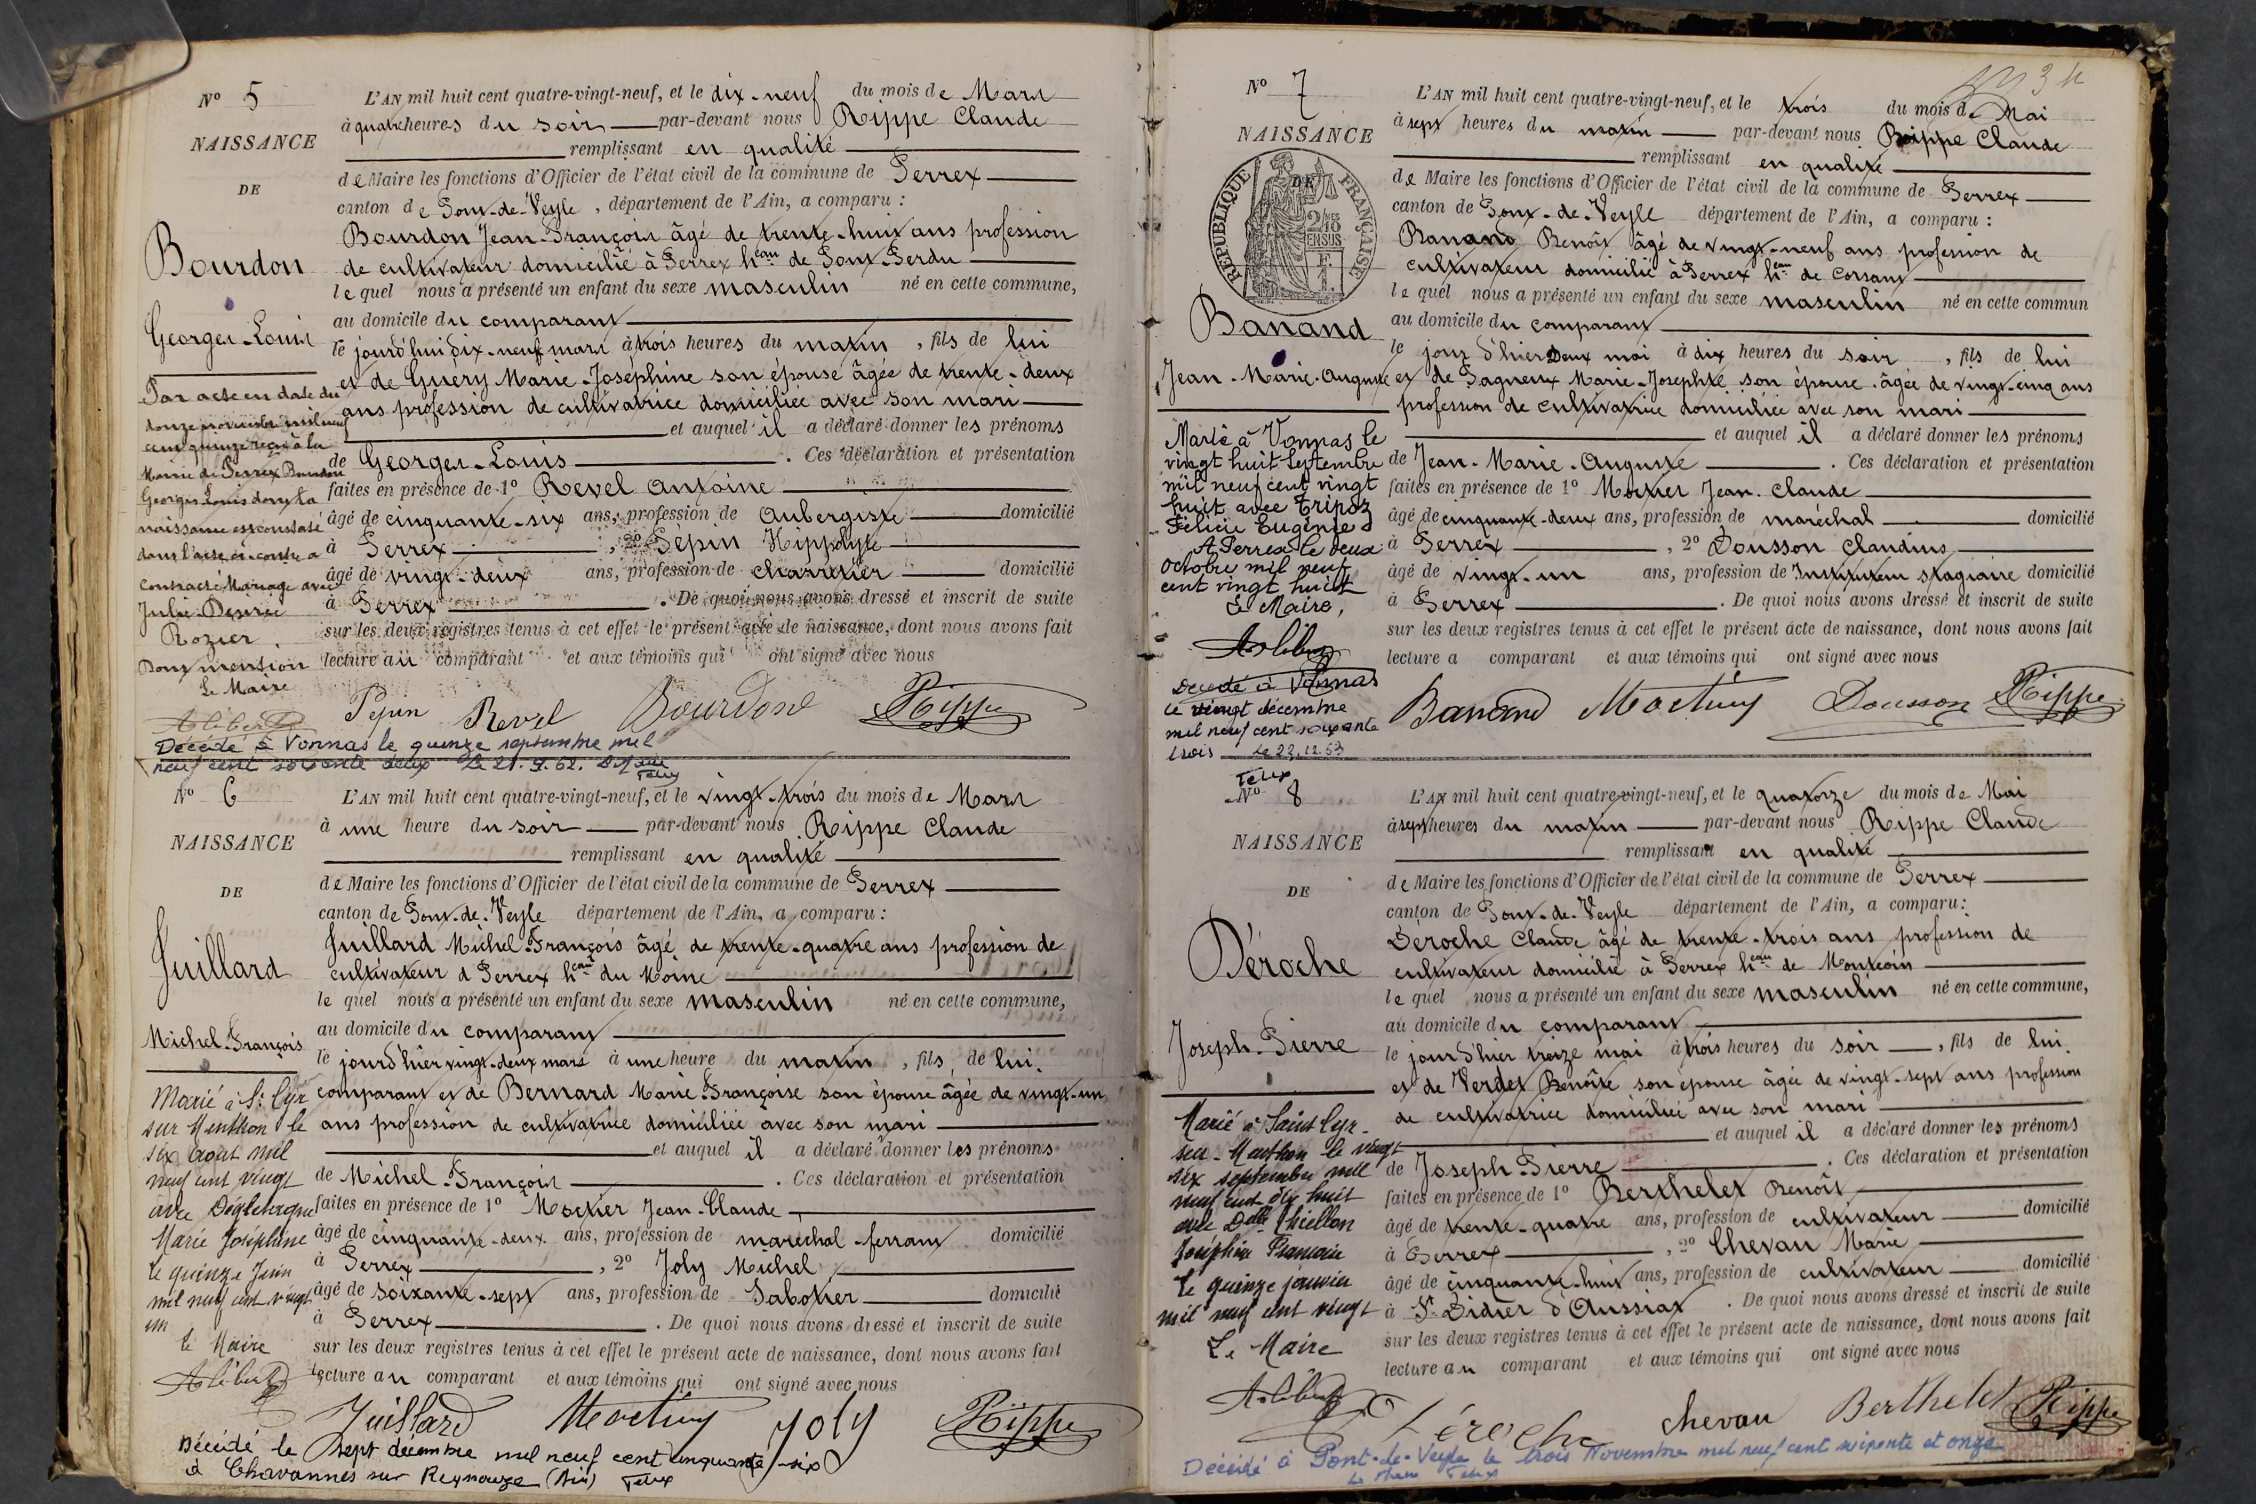 N° 5
NAISSANCE
DE
Bourdon
Georges-Louis
Par acte en date du
douze novembre mil neuf
cent quinze reçu à la
Mairie de Perrex Bourdon
Georges Louis dont la
naissance est constatée
dans l'acte ci-contre a
contracté Mariage avec
Julie-Désirée
Rozier
Dont mention
Le Maire
L'AN mil huit cent quatre-vingt-neuf, et le dix-neuf du mois de Mars
à quatre heures du soir par-devant nous Rippe Claude
remplissant en qualité
de Maire les fonctions d'Officier de l'état civil de la commune de Perrex
canton de Pont-de-Veyle, département de l'Ain, a comparu :
Bourdon Jean-François âgé de trente-huit ans profession
de cultivateur domicilié à Perrex heau de Pont-Perdu
lequel nous a présenté un enfant du sexe masculin né en cette commune,
au domicile du comparant
le jourd'hui dix-neuf mars à trois heures du matin, fils de lui
et de Guéry Marie-Joséphine son épouse âgée de trente-deux
ans profession de cultivatrice domiciliée avec son mari
et auquel il a déclaré donner les prénoms
de Georges-Louis. Ces déclaration et présentation
faites en présence de 1° Revel Antoine
âgé de cinquante-six ans, profession de Aubergiste domicilié
à Perrex, 2° Pépin Hippolyte
âgé de vingt-deux ans, profession de charretier domicilié
à Perrex. De quoi nous avons dressé et inscrit de suite
sur les deux registres tenus à cet effet le présent acte de naissance, dont nous avons fait
lecture au comparant et aux témoins qui ont signé avec nous
Pépin Revel Bourdon Rippe
Décédé à Vonnas le quinze septembre mil
neuf cent soixante deux Le 21.9.62.
N° 6
NAISSANCE
DE
Juillard
Michel-François
Marié à St Cyr
sur Menthon le
six Août mil
neuf cent vingt
avec
Marie Joséphine
le quinze Juin
mil neuf cent vingt
un
le Maire
L'AN mil huit cent quatre-vingt-neuf, et le vingt-trois du mois de Mars
à une heure du soir par-devant nous Rippe Claude
remplissant en qualité
de Maire les fonctions d'Officier de l'état civil de la commune de Perrex
canton de Pont-de-Veyle département de l'Ain, a comparu :
Juillard Michel-François âgé de trente-quatre ans profession de
cultivateur à Perrex heau du Moine
lequel nous a présenté un enfant du sexe masculin né en cette commune,
au domicile du comparant
le jour d'hier vingt-deux mars à une heure du matin, fils de lui
comparant et de Bernard Marie-Françoise son épouse âgée de vingt-un
ans profession de cultivatrice domiciliée avec son mari
et auquel il a déclaré donner les prénoms
de Michel-François. Ces déclaration et présentation
faites en présence de 1° Mortier Jean-Claude,
âgé de cinquante-deux ans, profession de maréchal-ferrant domicilié
à Perrex, 2° Joly Michel
âgé de soixante-sept ans, profession de Sabotier domicilié
à Perrex. De quoi nous avons dressé et inscrit de suite
sur les deux registres tenus à cet effet le présent acte de naissance, dont nous avons fait
lecture au comparant et aux témoins qui ont signé avec nous
Juillard Joly Rippe
Décédé le sept décembre mil neuf cent cinquante-six
à Chavannes sur Reyssouze (Ain)
N° 7
NAISSANCE
DE
RÉPUBLIQUE FRANÇAISE
Banand
Jean-Marie-Auguste
Marié à Vonnas le
vingt huit Septembre
mil neuf cent vingt
huit avec Tripoz
Félicie Eugénie
A Perrex le deux
octobre mil neuf
cent vingt huit
Le Maire,
Décédé à Vonnas
le vingt décembre
mil neuf cent soixante
trois
L'AN mil huit cent quatre-vingt-neuf, et le trois du mois de Mai
à sept heures du matin par-devant nous Rippe Claude
remplissant en qualité
de Maire les fonctions d'Officier de l'état civil de la commune de Perrex
canton de Pont-de-Veyle département de l'Ain, a comparu :
Banand Benoît âgé de vingt-neuf ans profession de
cultivateur domicilié à Perrex heau de Corsant
lequel nous a présenté un enfant du sexe masculin né en cette commun
au domicile du comparant
le jour d'hier deux mai à dix heures du soir, fils de lui
et de Pagneux Marie-Josephte son épouse âgée de vingt-cinq ans
profession de cultivatrice domiciliée avec son mari
et auquel il a déclaré donner les prénoms
de Jean-Marie-Auguste. Ces déclaration et présentation
faites en présence de 1° Mortier Jean-Claude
âgé de cinquante-deux ans, profession de maréchal domicilié
à Perrex, 2° Dousson Claudius
âgé de vingt-un ans, profession de Instituteur stagiaire domicilié
à Perrex. De quoi nous avons dressé et inscrit de suite
sur les deux registres tenus à cet effet le présent acte de naissance, dont nous avons fait
lecture a comparant et aux témoins qui ont signé avec nous
Banand Dousson Rippe
N° 8
NAISSANCE
DE
Déroche
Joseph-Pierre
Marié à Saint Cyr
sur-Menthon le vingt
six septembre mil
neuf cent dix huit
avec Delle Thiellon
Joséphine
le quinze janvier
mil neuf cent vingt
Le Maire
L'AN mil huit cent quatre-vingt-neuf, et le quatorze du mois de Mai
à sept heures du matin par-devant nous Rippe Claude
remplissant en qualité
de Maire les fonctions d'Officier de l'état civil de la commune de Perrex
canton de Pont-de-Veyle département de l'Ain, a comparu :
Déroche Claude âgé de trente-trois ans profession de
cultivateur domicilié à Perrex heau de Montcoin
lequel nous a présenté un enfant du sexe masculin né en cette commune,
au domicile du comparant
le jour d'hier treize mai à trois heures du soir, fils de lui
et de Verdet Benoîte son épouse âgée de vingt-sept ans profession
de cultivatrice domiciliée avec son mari
et auquel il a déclaré donner les prénoms
de Joseph-Pierre. Ces déclaration et présentation
faites en présence de 1° Berthelet Benoît
âgé de trente-quatre ans, profession de cultivateur domicilié
à Perrex, 2° Chevau Marie
âgé de cinquante-huit ans, profession de cultivateur domicilié
à St Didier d'Aussiat. De quoi nous avons dressé et inscrit de suite
sur les deux registres tenus à cet effet le présent acte de naissance, dont nous avons fait
lecture au comparant et aux témoins qui ont signé avec nous
Déroche Chevau Berthelet Rippe
Décédé à Pont-de-Veyle le trois Novembre mil neuf cent soixante et onze